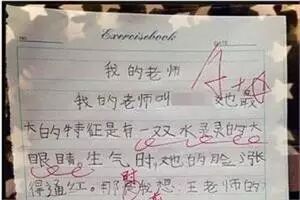 Exercisebook
我的老师
A+
我的老师叫 她最
大的特征是有一双水灵灵的大
眼睛。生气时,她的脸 张
得通红。那时 想:王老师的